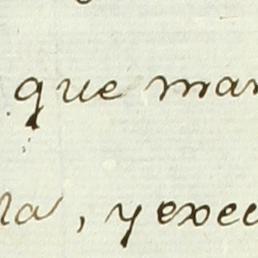 que man
la, y execu